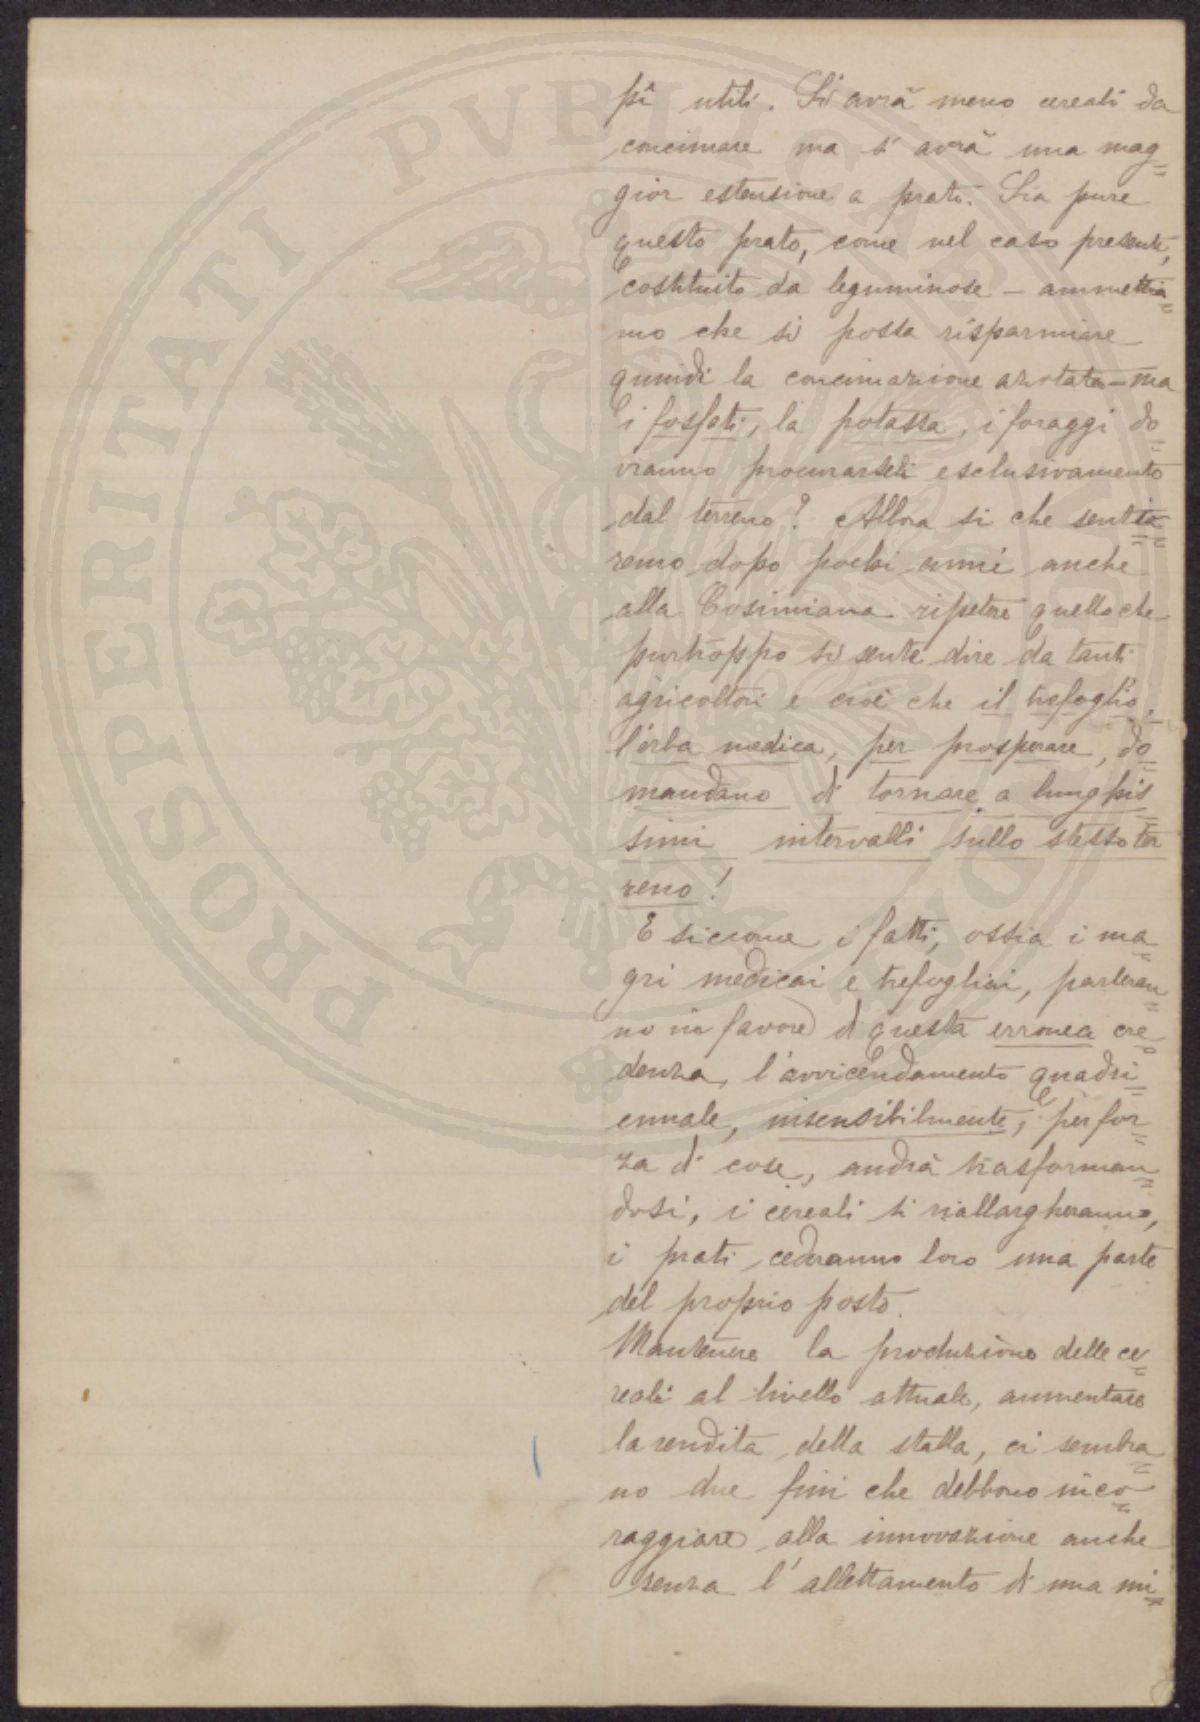 pî utili. Si avrà meno cereali da
concimare ma s'avrà una mag=
gior estensione a prato. Sia pure
questo prato, come nel caso presente,
costituito da leguminose – ammettia=
mo che si possa risparmiare
quindi la concimazione azotata – ma
i fosfati, la potassa, i foraggi do=
vranno procurarseli esclusivamente
dal terreno? Allora si che senti=
remo dopo pochi anni anche
alla Cosimiana ripetere quello che
purtroppo si sente dire da tanti
agricoltori e cioè che il trefoglio,
l'erba medica, per prosperare, do=
mandano di tornare a lunghis=
simi intervalli sullo stesso ter
reno!
E siccome i fatti, ossia i ma=
gri medicai e trefogliai, parleran=
no in favore di questa erronea cre=
denza, l'avvicendamento quadri=
ennale, insensibilmente, per for=
za di cose, andrà trasforman=
dosi, i cereali si riallargheranno,
i prati cederanno loro una parte
del proprio posto.
Mantenere la produzione delle ce=
reali al livello attuale, aumentare
la rendita della stalla, ci sembra=
no due fini che debbono inco=
raggiare alla innovazione anche
senza l'allettamento di una mi=
PROSPERITATI PVBLICAE